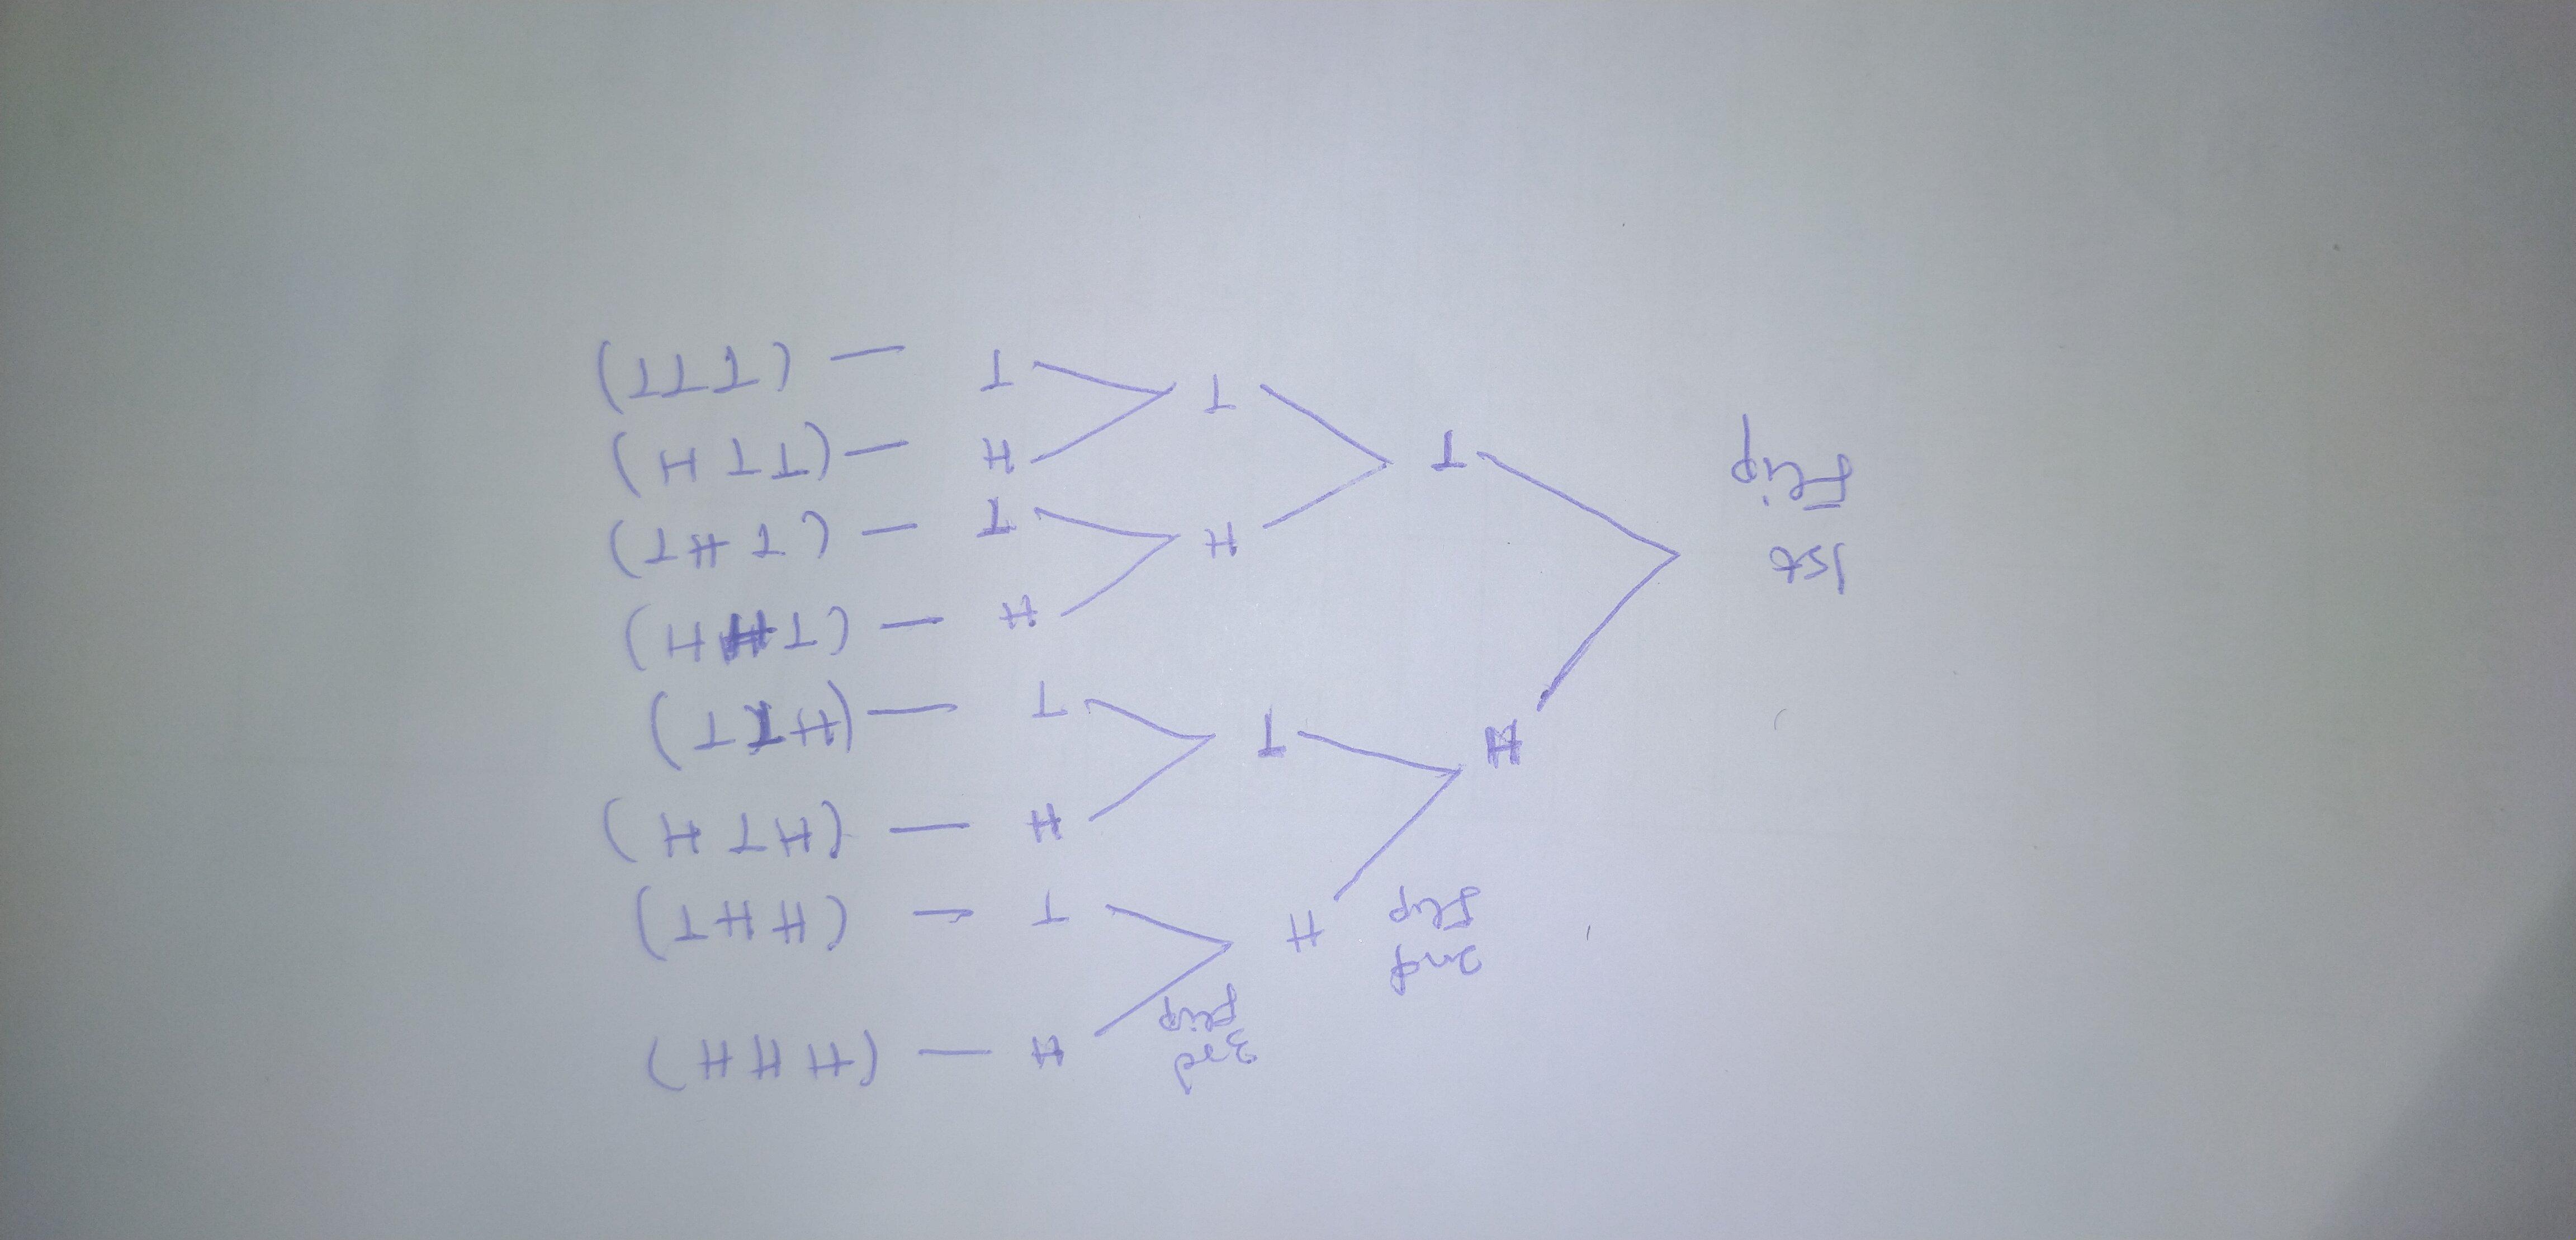 3rd
flip
H — (HHH)
2nd
flip
H
T — (HHT)
H
H — (HTH)
T
T — (HTT)
1st
Flip
H — (THH)
H
T — (THT)
T
H — (TTH)
T
T — (TTT)